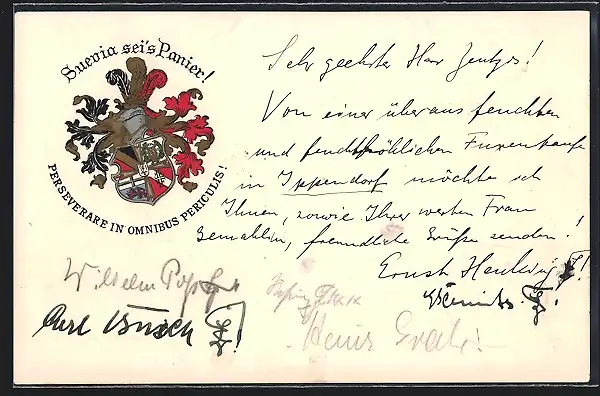 Suevia sei's Panier!
PERSEVERARE IN OMNIBUS PERICULIS!
Sehr geehrter Herr
Von einer überaus feuchten
und feuchtfröhlichen Fuxentaufe
in Ippendorf möchte ich
Ihnen, sowie Ihrer werten Frau
Gemahlin, freundliche Grüße senden!
Ernst
Wilhelm
Carl Busch
Heinz